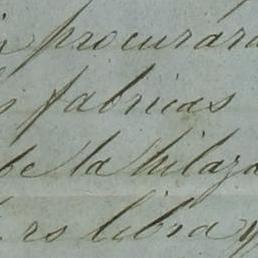 procurará
fabricas
de la hilaza
rs libra y